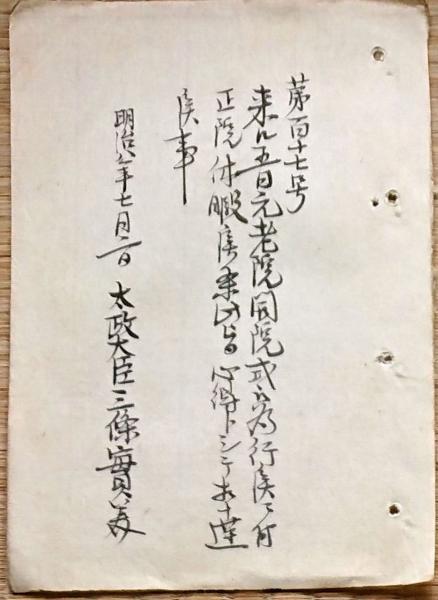 第百十七号
来ル五日元老院開院式被為行候ニ付
正院休暇候条此旨心得トシテ相達
候事
明治八年七月二日 太政大臣三條實美